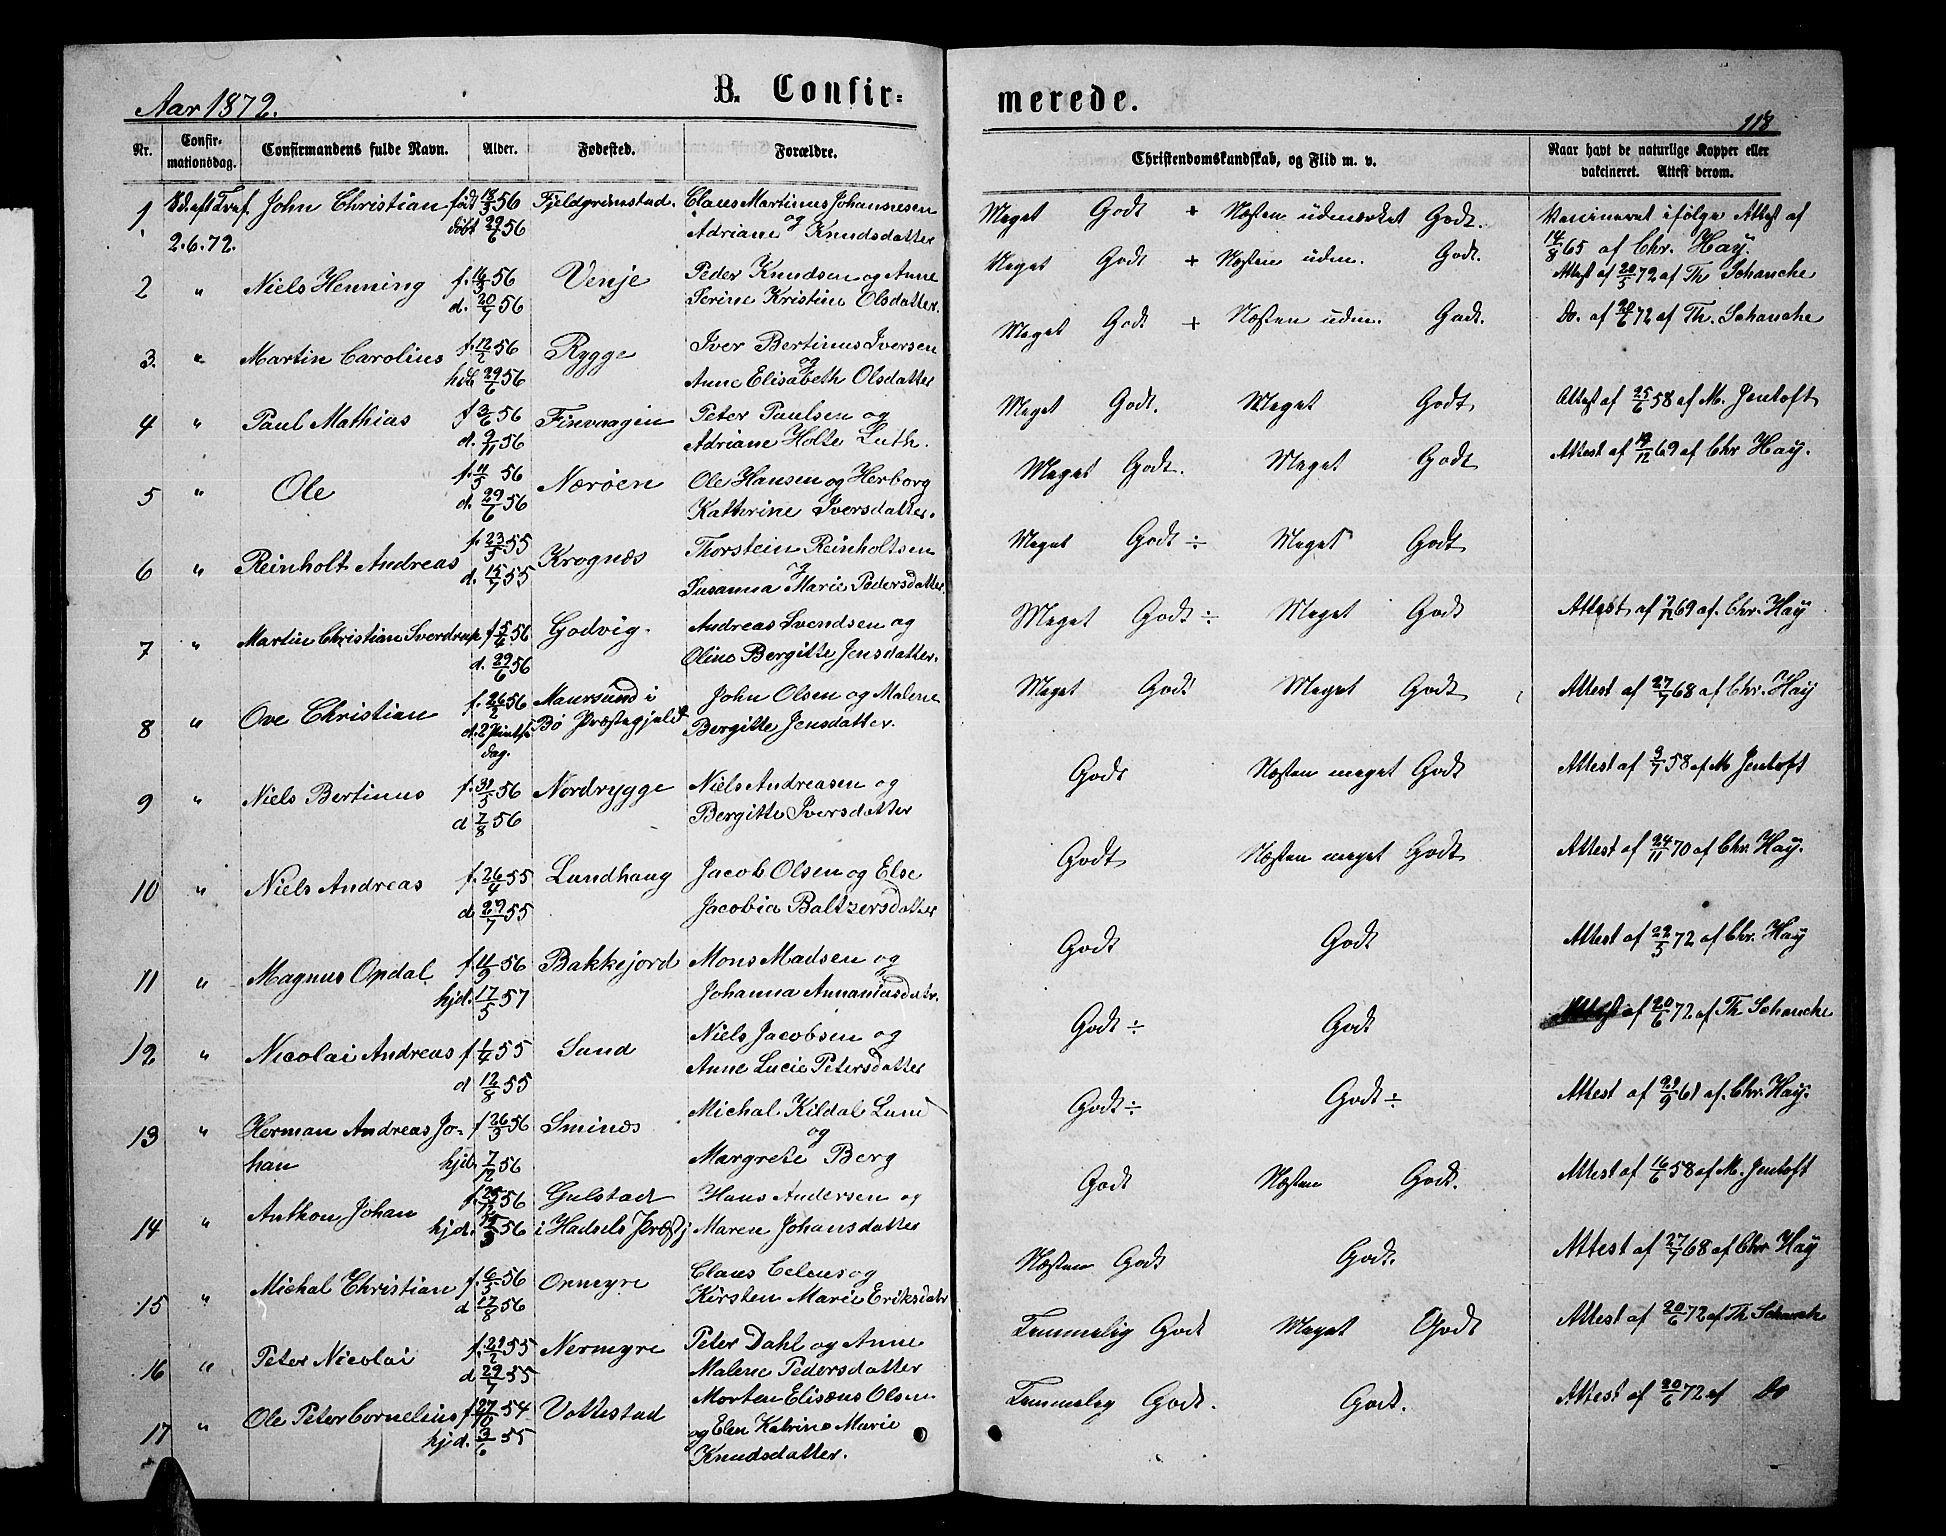 Aar 1872.
B. Confir= merede.
118
Nr.
Confir-
mationsdag.
Confirmandens fulde Navn.
Alder.
Fødested.
Forældre.
Christendomskundskab, og Flid m. v.
Naar havt de naturlige Kopper eller
vakcineret. Attest derom.
1 John Christian født 18/3 56 Fjeldgrimstad. Claus Martinus Johannesen Meget Godt + Næsten udmerket Godt. Vaccineret ifølge Attest af
2.6.72. døbt 29/6 56 og Adriane Knudsdatter 14/8 65 af Chr. Hay.
2 " Niels Henning f. 16/3 56 Venje Peder Knudsen og Anne Meget Godt + Næsten udm. Godt. Attest af 20/5 72 af Th. Schanche
d. 20/7 56 Perine Kristine Olsdatter.
3. " Martin Carolius f. 12/2 56 Rygge Iver Bertinus Iversen Meget Godt + Næsten udm. Godt. Do. af 20/6 72 af Th. Schanche
29/6 56 og Anne Elisabeth Olsdatter
4 " Paul Mathias f 3/6 56 Finvaagen Peter Paulsen og Meget Godt. Meget Godt Attest af 25/6 58 af M. Jentoft
d. 9/11 56 Adriane Holte Luth.
5 " Ole f. 11/5 56 Nærøen Ole Hansen og Herborg Meget Godt. Meget Godt Attest af 19/12 69 af Chr Hay.
d. 29/6 56 Kathrine Iversdatter.
6 " Reinholt Andreas f. 23/5 55 Krognæs Thorstein Reinholtsen Meget Godt ÷ Meget Godt
d. 15/7 55 og Susanna Marie Pedersdatter.
7 " Martin Christian Sverdrup f 5/4 56 Godvig. Andreas Svendsen og Meget Godt ÷ Meget Godt Attest af 69 af. Chr. Hay
d. 29/6 56 Oline Bergitte Jensdatter.
8 " Ove Christian f. 26/2 56 Maursund i John Olsen og Malene Meget Godt Meget Godt Attest af 27/7 68 af Chr. Hay
d. 2 Pintse Bø Præstegjæld Bergitte Jensdatter.
dag.
9 " Niels Bertinus f. 31/5 56 Nordrygge Niels Andreasen og Godt Næsten meget Godt Attest af 9/7 58 af M Jentoft
d 7/8 56 Bergitte Iversdatter
10 " Niels Andreas f. 26/4 55 Lundhaug Jacob Olsen og Else Godt Næsten meget Godt Attest af 24/11 70 af Chr. Hay.
d 29/7 55 Jacobia Baltzersdatter
11 " Magnus Opdal f. 11/9 56 Bakkejord Mons Madsen og Godt Godt Attest af 22/5 72 af Chr. Hay
hjd. 17/5 57 Johanna Annaniasdatr.
12 " Nicolai Andreas f 1/4 55 Sund Niels Jacobsen og Godt ÷ Godt Attest af 20/6 72 af Th Schanche
d 12/8 55 Anne Lucie Petersdatter
13 " Herman Andreas Jo- f 26/5 56 Sminæs Michal Kildal Lund Godt ÷ Godt ÷ Attest af 29/9 61 af. Chr. Hay.
han hjd. 7/12 56 og Margrete Berg
14 " Anthon Johan f. 56 Gulstad Hans Andersen og Godt Næsten Godt. Attest af 16/6 58 af M. Jentoft
hjd. 56 i Hadsels Præstgj Maren Johansdatter
15 " Michal Christian f. 6/5 56 Ormyre Claus Celius og Næsten Godt Godt. Attest af 27/7 68 af Chr Hay
d 17/8 56 Kirsten Marie Eriksdatr
16 " Peter Nicolai f. 29/2 55 Nermyre Peter Dahl og Anne Temmelig Godt Meget Godt Attest af 20/6 72 af Th Schanche
d 29/7 55 Malene Pedersdatter
17 " Ole Peter Cornelius f 27/10 54 Vottestad Morten Elisæus Olsen Temmelig Godt. Godt. Attest af 20/6 72 af Do
hjd. 3/6 55 og Elen Katrine Marie
Knudsdatter.